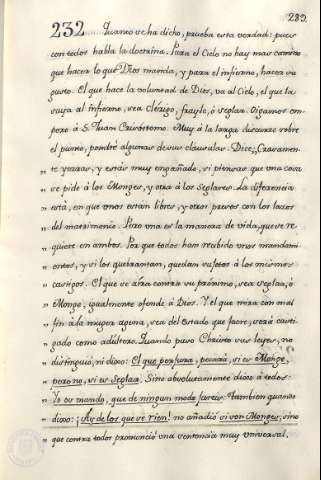 282.
232 Quanto se ha dicho, prueba esta verdad: pues
con todos habla la doctrina. Para el Cielo no hay mas camino
que hacer lo que Dios manda, y para el infierno, hacer su
gusto. El que hace la voluntad de Dios, va al Cielo, el que la
suya al infierno, sea Clérigo, frayle, ó seglar. Oigamos em-
pero á S. Juan Crisóstomo. Muy á la larga discurre sobre
el punto, pondré algunas de sus clausulas. Dice: „Gravamen-
„ te yerras, y estás muy engañado, si piensas que una cosa
„ se pide á los Monges, y otra á los Seglares. La diferencia
„ está, en que unos estan libres, y otros presos con los lazos
„ del matrimonio. Pero una es la manera de vida, que se re-
„ quiere en ambos. Porque todos han recibido unos mandami-
„ entos, y si los quebrantan, quedan sujetos á los mismos
„ castigos. El que se aira contra su proximo, sea seglar, ó
„ Monge, igualmente ofende á Dios. Y el que mira con mal
„ fin á la muger agena, sea del estado que fuere, será casti-
„ gado como adultero. Quando puso Christo sus leyes, no
„ distinguió, ni dixo: El que perjura, pecará, si es Monge,
„ pero no, si es Seglar. Sino absolutamente dixo á todos:
„ Yo os mando, que de ningun modo jureis. Tambien quando
„ dixo: ¡Ay de los que se rien! no añadió si son Monges, sino
„ que contra todos pronunció una sentencia muy universal.